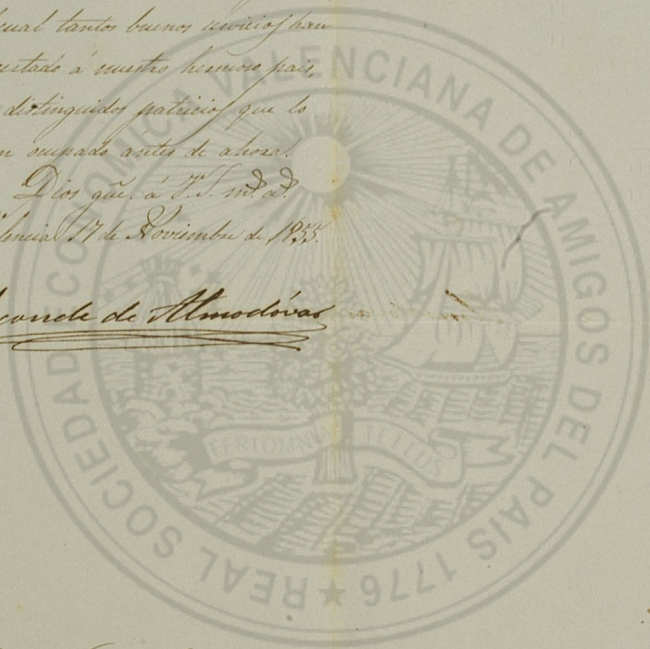 cual tantos buenos servicios han
prestado á nuestro hermoso pais,
distinguidos patricios que lo
han ocupado antes de ahora.
Dios gue. á V.S. ms. as.
Valencia 17 de Noviembre de 1855.
Vizconde de Almodóvar
REAL SOCIEDAD ECONOMICA VALENCIANA DE AMIGOS DEL PAIS 1776 ★
FERT OMNIA TELLUS